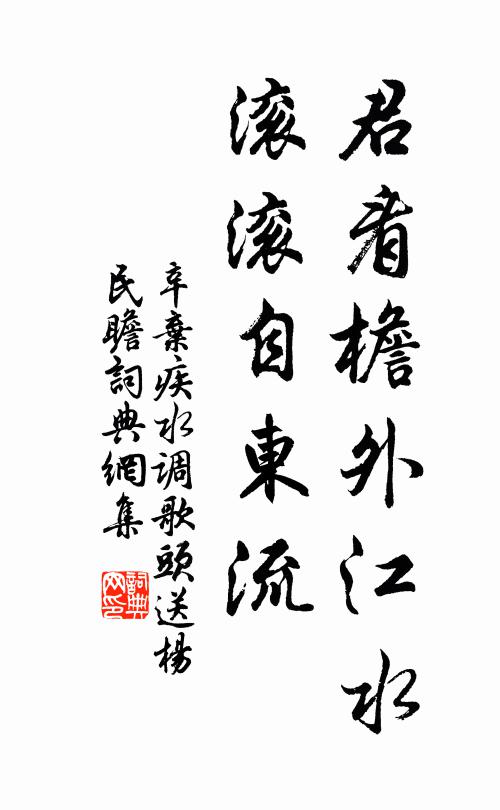 君看檐外江水
滚滚自東流
辛棄疾水调歌頭送楊
民瞻詞典網集
詞典
网印